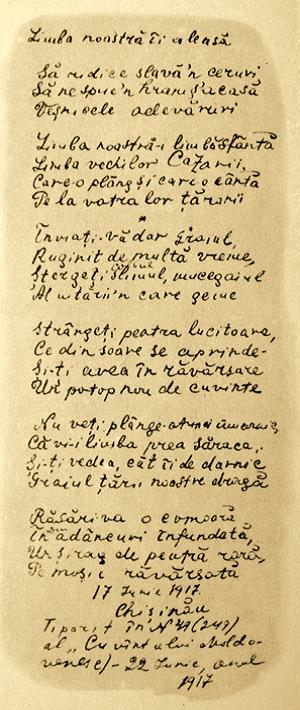 Limba noastră îi aleasă
Să ridice slavă'n ceruri
Să ne spue'n hram ș'acasă
Veșnicele adevăruri
Limba noastră-i limbă sfântă
Limba vechilor Cazanii,
Care-o plâng și care-o cântă
Pe la vatra lor țăranii
*
Înviați-vă dar graiul,
Ruginit de multă vreme,
Ștergeți slinul, mucegaiul
Al uitării'n care geme
Strângeți peatra lucitoare,
Ce din soare se aprinde-
Și-ți avea în răvărsare
Un potop nou de cuvinte
Nu veți plânge-atunci amarnic,
Că vi-i limba prea săraca,
Și-ți vedea, cât îi de darnic
Graiul țării noastre dragă
Răsări-va o comoară
În adâncuri înfundată,
Un șirag de peatră rară,
Pe moșie răvărsată
17 Iunie 1917
Chișinău
Tipărit în N 49 (249)
al „Cuvîntului Moldo-
venesc) - 22 Iunie, anul
1917